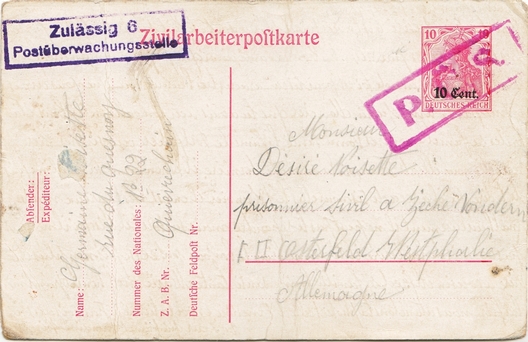 Zulässig 6
Postüberwachungsstelle
Zivilarbeiterpostkarte
10 10
10 Cent.
DEUTSCHES REICH
Absender:
Expéditeur:
Name: Germaine
rue du Quesnoy
Nummer des Nationales: N° 22
Z. A. B. Nr. Quiévrechain
Deutsche Feldpost Nr.
Monsieur
Désiré Voisette
prisonnier civil a Zeche Vondern
Osterfeld Westphalie
Allemagne